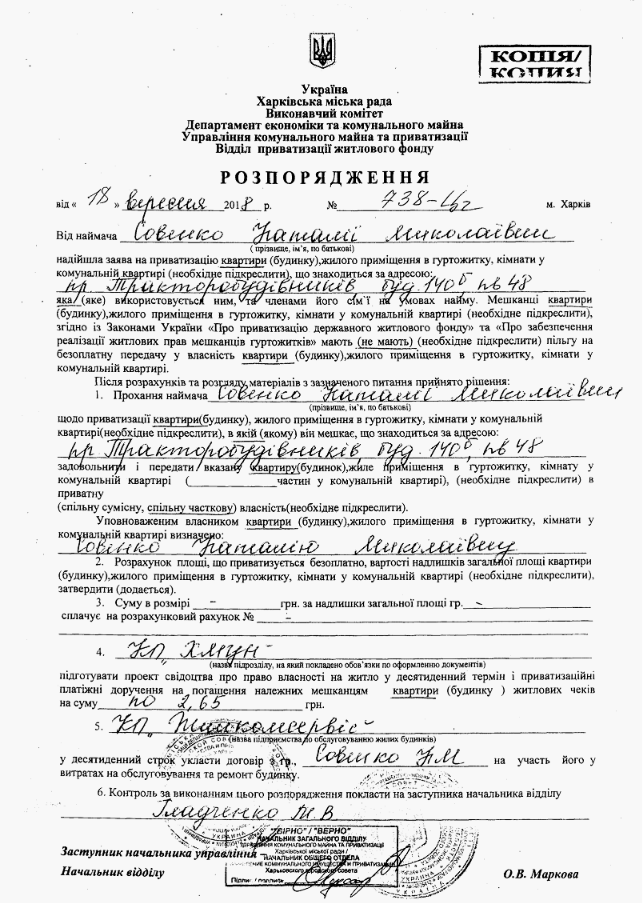 КОПІЯ/
КОПИЯ
Україна
Харківська міська рада
Виконавчий комітет
Департамент економіки та комунального майна
Управління комунального майна та приватизації
Відділ приватизації житлового фонду
РОЗПОРЯДЖЕННЯ
від « 18 » вересня 2018 р. № 738-16/2 м. Харків
Від наймача Совенко Наталії Миколаївни
( прізвище, ім’я, по батькові)
надійшла заява на приватизацію квартири (будинку),жилого приміщення в гуртожитку, кімнати у
комунальній квартирі (необхідне підкреслити), що знаходиться за адресою:
пр Тракторобудівників буд. 140б кв 48
яка (яке) використовується ним, та членами його сім’ї на умовах найму. Мешканці квартири
(будинку),жилого приміщення в гуртожитку, кімнати у комунальній квартирі (необхідне підкреслити),
згідно із Законами України «Про приватизацію державного житлового фонду» та «Про забезпечення
реалізації житлових прав мешканців гуртожитків» мають (не мають) (необхідне підкреслити) пільгу на
безоплатну передачу у власність квартири (будинку),жилого приміщення в гуртожитку, кімнати у
комунальній квартирі.
Після розрахунків та розгляду матеріалів з зазначеного питання прийнято рішення:
1. Прохання наймача Совенко Наталії Миколаївни
(прізвище, ім’я, по батькові)
щодо приватизації квартири(будинку), жилого приміщення в гуртожитку, кімнати у комунальній
квартирі(необхідне підкреслити), в якій (якому) він мешкає, що знаходиться за адресою:
пр Тракторобудівників, буд. 140б, кв 48
задовольнити і передати вказану квартиру(будинок),жиле приміщення в гуртожитку, кімнату у
комунальній квартирі ( частин у комунальній квартирі), (необхідне підкреслити) в
приватну
(спільну сумісну, спільну часткову) власність(необхідне підкреслити).
Уповноваженим власником квартири (будинку),жилого приміщення в гуртожитку, кімнати у
комунальній квартирі визначено:
Совенко Наталію Миколаївну
2. Розрахунок площі, що приватизується безоплатно, вартості надлишків загальної площі квартири
(будинку),жилого приміщення в гуртожитку, кімнати у комунальній квартирі (необхідне підкреслити),
затвердити (додається).
3. Суму в розмірі – грн. за надлишки загальної площі гр. –
сплачує на розрахунковий рахунок № –
4. КП „ХМУН“
(назва підрозділу, на який покладено обов’язки по оформленню документів)
підготувати проект свідоцтва про право власності на житло у десятиденний термін і приватизаційні
платіжні доручення на погашення належних мешканцям квартири (будинку ) житлових чеків
на суму по 2,65 грн.
5. КП „Жилкомсервіс“
(назва підприємства по обслуговуванню жилих будинків)
у десятиденний строк укласти договір з гр., Совенко НМ на участь його у
витратах на обслуговування та ремонт будинку.
6. Контроль за виконанням цього розпорядження покласти на заступника начальника відділу
Гладченко
"ВІРНО" / "ВЕРНО"
НАЧАЛЬНИК ЗАГАЛЬНОГО ВІДДІЛУ
Харківської міської ради /
НАЧАЛЬНИК ОБЩЕГО ОТДЕЛА
Харьковского городского совета
Заступник начальника управління –
Начальник відділу О.В. Маркова